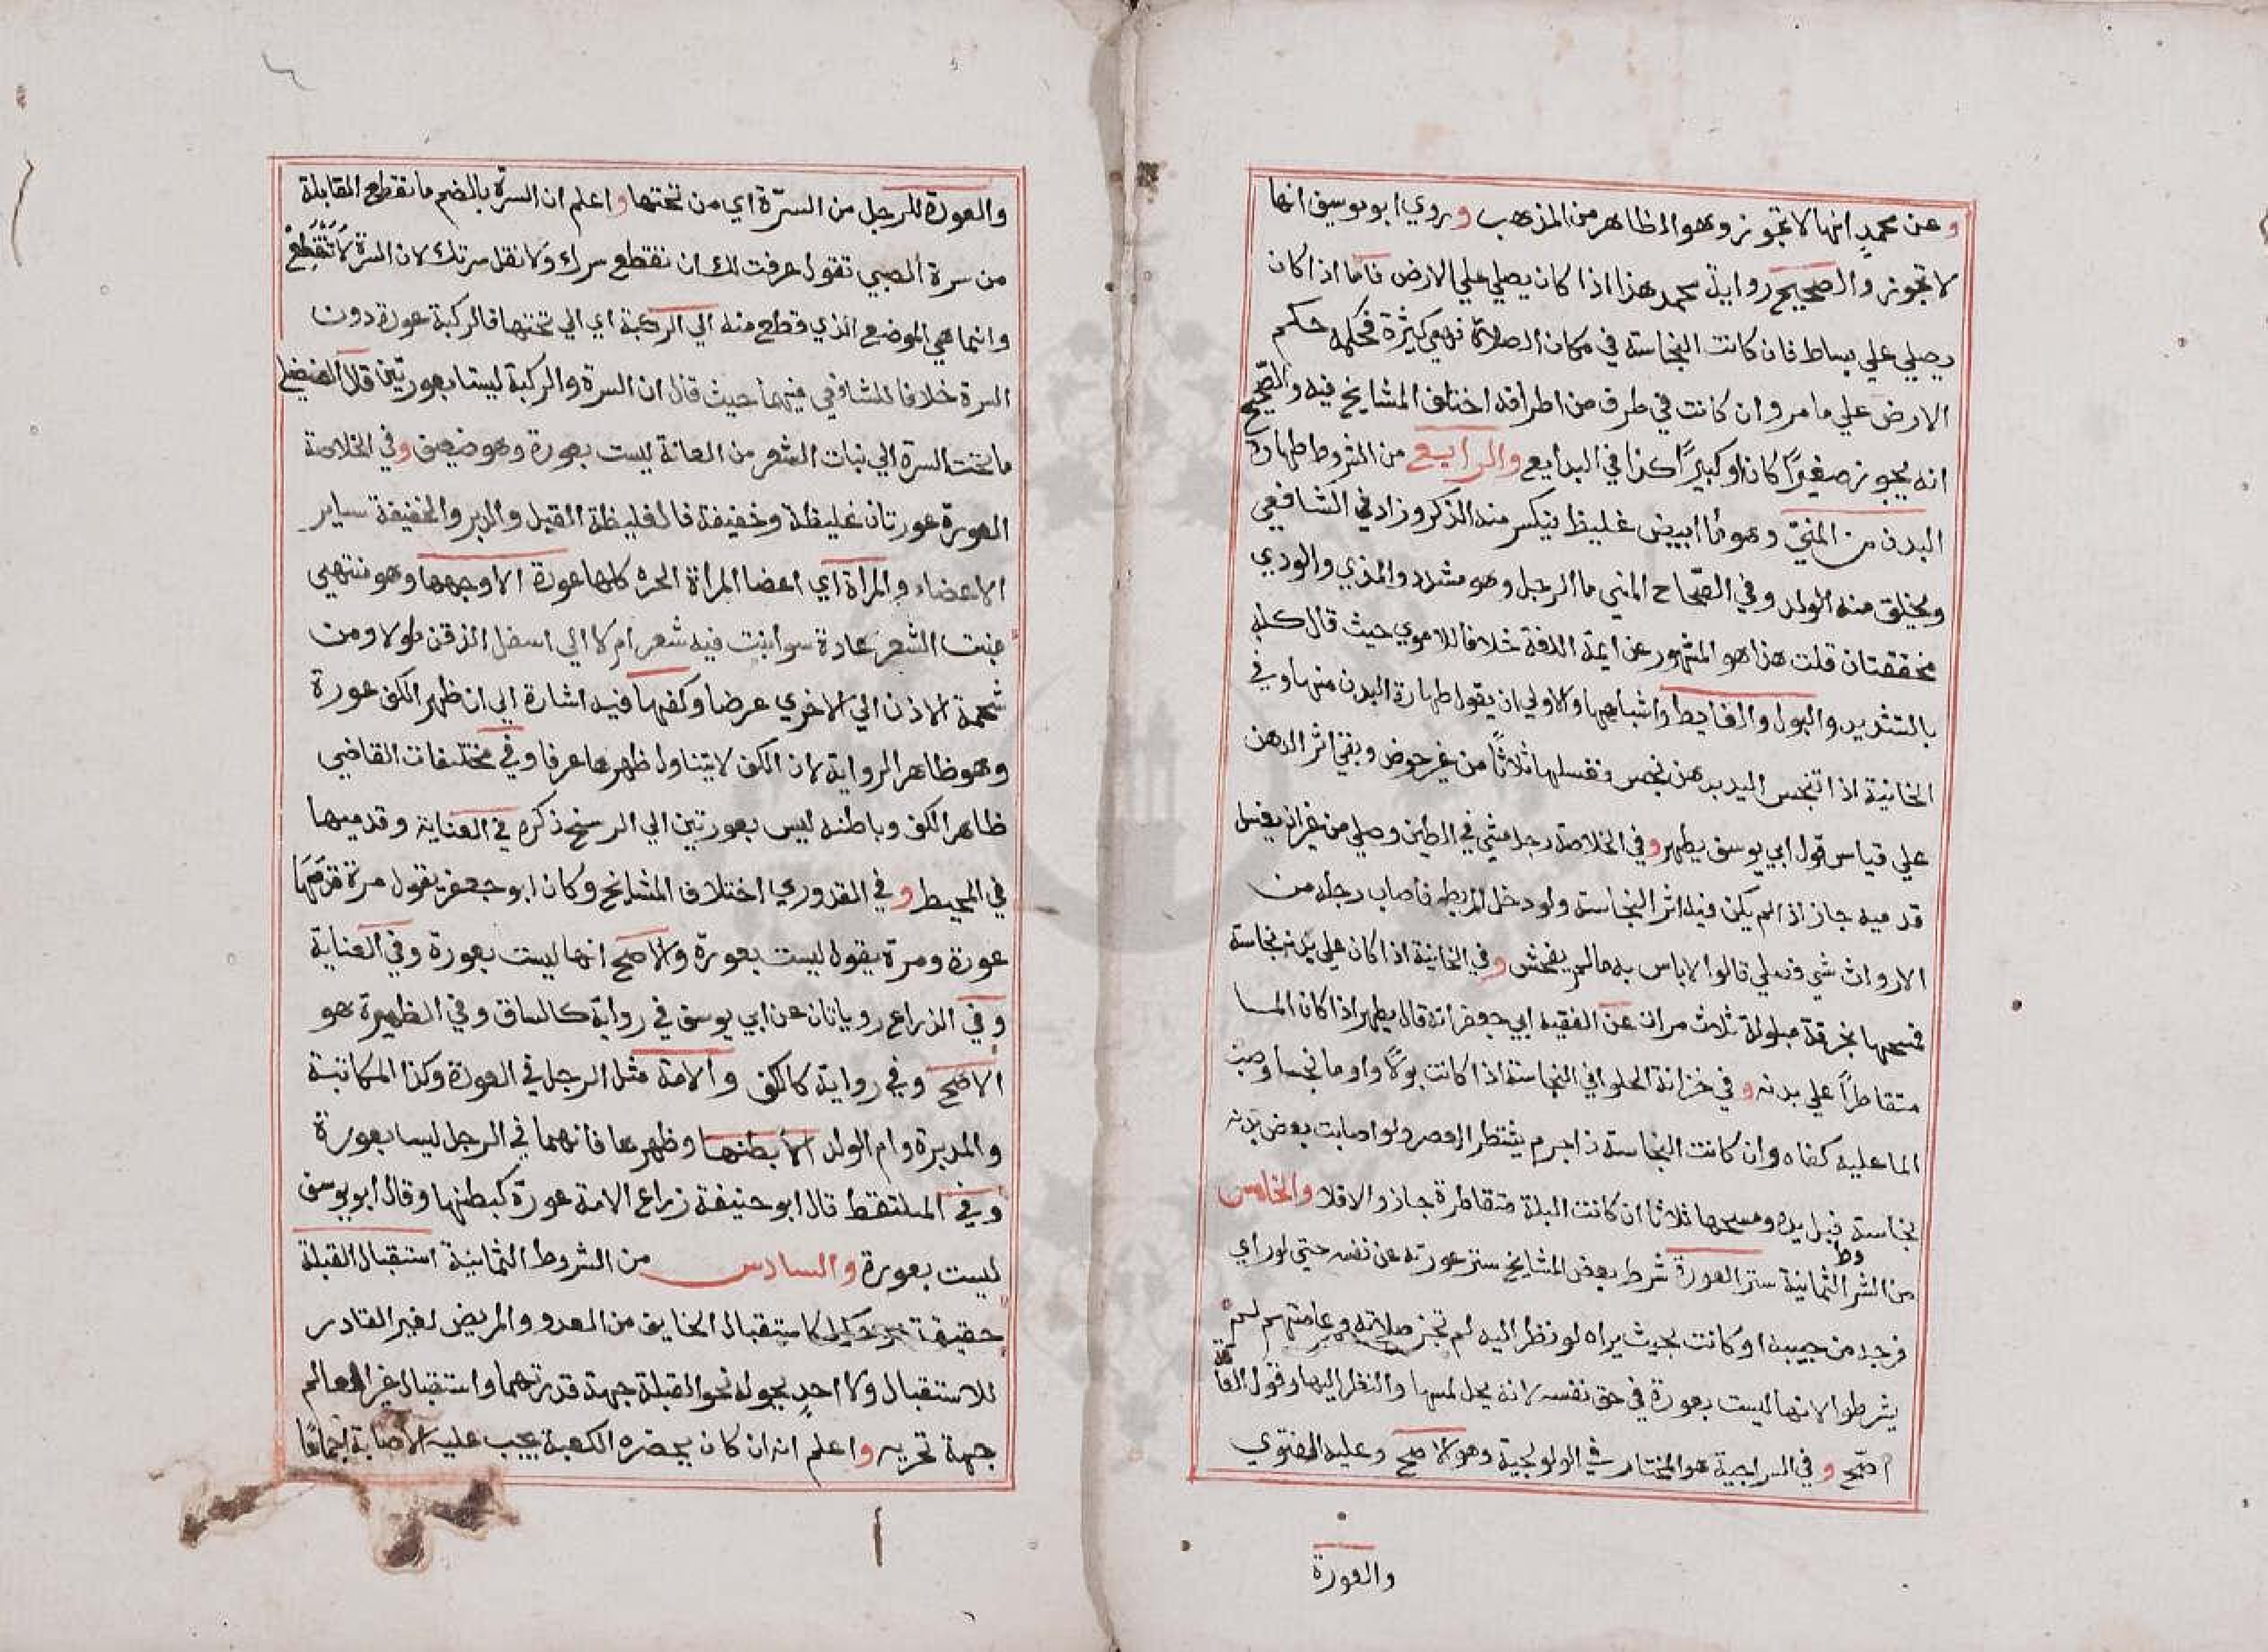 وعن محمد انها لا تجوز وهو الظاهر من المذهب وروي ابو يوسف انها
لا تجوز والصحيح رواية محمد هذا اذا كان يصلي علي الارض فاما اذا كان
يصلي علي بساط فان كانت النجاسة في مكان الصلاة فهي كثيرة فحكمه حكم
الارض علي ما مر وان كانت في طرف من اطرافه اختلف المشايخ فيه والصحيح
انه يجوز صغيرًا كان او كبيرًا كذا في البدايع والرابع من الشروط طهارة
البدن من المنيّ وهو ما ابيض غليظ ينكسر منه الذكر وزاد في الشافعي
ويخلق منه الولد وفي الصّحاح المني ما الرجل وهو مشدد والمذي والودي
مخففتان قلت هذا هو المشهور عن ايمة اللغة خلافا للاموي حيث قال كله
بالتشديد والبول والغايط واشباهها والاولي ان يقول طهارة البدن منها وفي
الخانية اذا تنجس اليد بدهن نجس وغسلها ثلاثًا من غير حوض وبقي اثر الدهن
علي قياس قول ابي يوسف يطهر وفي الخلاصة رجل مشي في الطين وصلي من غير ان يغسل
قدميه جاز اذا لم يكن فيه اثر النجاسة ولو دخل المربط فاصاب رجله من
الارواث شي فصلي قالوا لا باس به ما لم يفحش وفي الخانية اذا كان علي بدنه نجاسة
فمسحها بخرقة مبلولة ثلاث مرات عن الفقيه ابي جعفر انه قال يطهر اذا كان الما
متقاطرًا علي بدنه وفي خزانة الحلوا في النجاسة اذا كانت بولًا او ما نجسا وصبّ
الما عليه كفاه وان كانت النجاسة ذا جرم يشتطر العصر ولو اصابت بعض بدنه
نجاسة فبل يده ومسحها ثلاثا ان كانت البلة متقاطرة جاز والا فلا والخامس
من الشروط الثمانية ستر العورة شرط بعض المشايخ ستر عورته عن نفسه حتي لو راي
فرجه من جيبه او كانت بحيث يراه لو نظر اليه لم تجز صلاته وعامتهم لم
يشرطوا لانها ليست بعورة في حق نفسه لانه يحل لمسها والنظر اليها وقول العامة
اصّح وفي السراجية هو المختار في الولوالجية وهو الاصح وعليه الفتوي
والعورة
والعورة للرجل من السرّة اي من تحتها واعلم ان السرّة بالضم ما تقطع القابلة
من سرة الصبي تقول عرفت لك ان تقطع سرك ولا تقل سرتك لان السرة لا تُقْطَعُ
وانما هي الموضع الذي قطع منه الي الركبة اي الي تحتها فالركبة عورة دون
السرة خلافا للشافعي فيهما حيث قال ان السرة والركبة ليستا بعورتين قال الفضلي
ما تحت السرة الي نبات الشعر من العانة ليست بعورة وهو ضعيف وفي الخلاصة
العورة عورتان غليظة وخفيفة فالغليظة القبل والدبر والخفيفة ساير
الاعضاء والمراة اي اعضا المراة الحره كلها عورة الا وجهها وهو منتهي
منبت الشعر عادة سوا نبت فيه شعر ام لا الي اسفل الذقن طولا ومن
شحمة الاذن الي الاخري عرضا وكفيها فيه اشارة الي ان ظهر الكف عورة
وهو ظاهر الرواية لان الكف لا يتناول ظهرها عرفا وفي مختلفات القاضي
ظاهر الكف وباطنه ليس بعورتين الي الرسغ ذكره في العناية وقدميها
في المحيط وفي القدوري اختلاف المشايخ وكان ابو جعفر يقول مرة قدمَهَا
عورة ومرة يقول ليست بعورة والاصح انها ليست بعورة وفي العناية
وفي الذراع روايتان عن ابي يوسف في رواية كالساق وفي الظهيرة هو
الاصح وفي رواية كالكف والامة مثل الرجل في العورة وكذا المكاتبة
والمدبرة وام الولد الا بطنها وظهرها فانهما في الرجل ليسا بعورة
وفي الملتقط قال ابو حنيفة ذراع الامة عورة كبطنها وقال ابو يوسف
ليست بعورة والسادس من الشروط الثمانية استقبال القبلة
حقيقة كاستقبال الخايف من العدو والمريض لغير القادر
للاستقبال ولا احدٍ يحوله نحو القبلة جهة قدرتهما واستقبال غير العالم
جهة تحريه واعلم انه ان كان بحضره الكعبة يجب عليه الاصابة اجماعًا